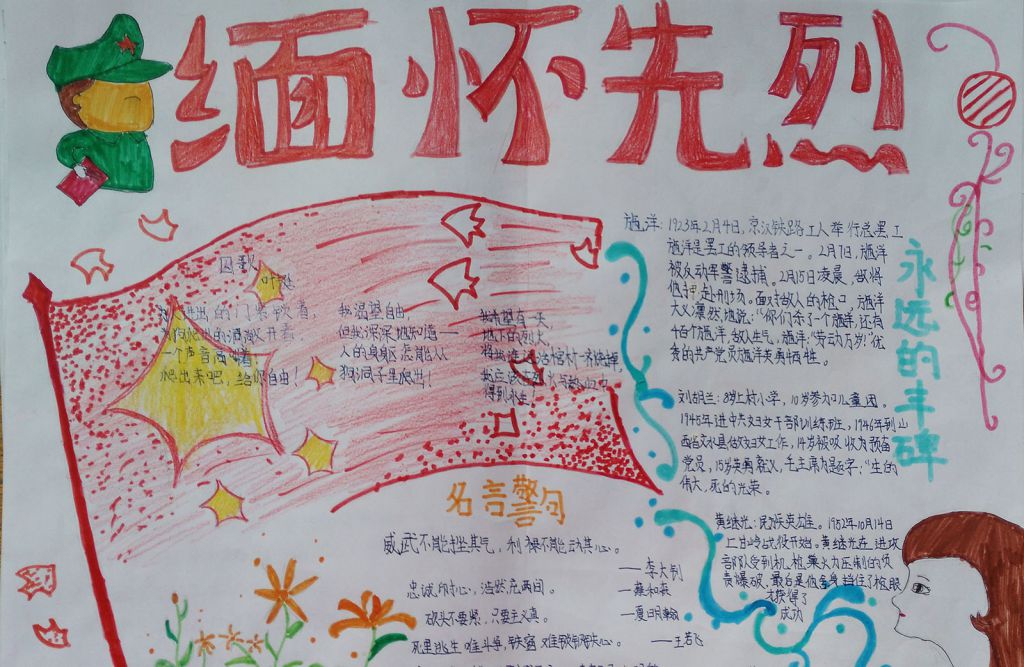 缅怀先烈
囚歌
叶挺
进出的门紧锁着，
爬出的洞敞开着，
一个声音高叫着：
爬出来吧，给你自由！
我渴望自由，
但我深深地知道——
人的身躯怎能从
狗洞子里爬出！
我希望有一天，
地下的烈火，
得到永生！
永远的丰碑
施洋：1923年2月4日，京汉铁路工人举行总罢工
施洋是罢工的领导者之一。2月7日，施洋
被反动军警逮捕。2月15日凌晨，敌将
他押赴刑场。面对敌人的枪口，施洋
大义凛然地说：“你们杀了一个施洋，还有
千百个施洋，敌人生气，施洋：“劳动万岁！”优
秀的共产党员施洋英勇牺牲。
刘胡兰：8岁上村小学，10岁参加儿童团。
1945年进中共妇女干部训练班，1946年到山
西省文水县做妇女工作，14岁被吸收为预备
党员，15岁英勇就义，毛主席为题字：“生的
伟大，死的光荣。
黄继光：民族英雄。1952年10月14日
上甘岭战役开始。黄继光在进攻
部队受到机枪集火力压制的负
责爆破，最后是他舍身挡住了枪眼
才获得了
成功
名言警句
威武不能挫其气，利禄不能动其心。
——李大钊
忠诚印寸心，浩然充两间。
——蔡和森
砍头不要紧，只要主义真。
——夏明翰
死里逃生唯斗争，铁窗难锁钢铁心。
——王若飞